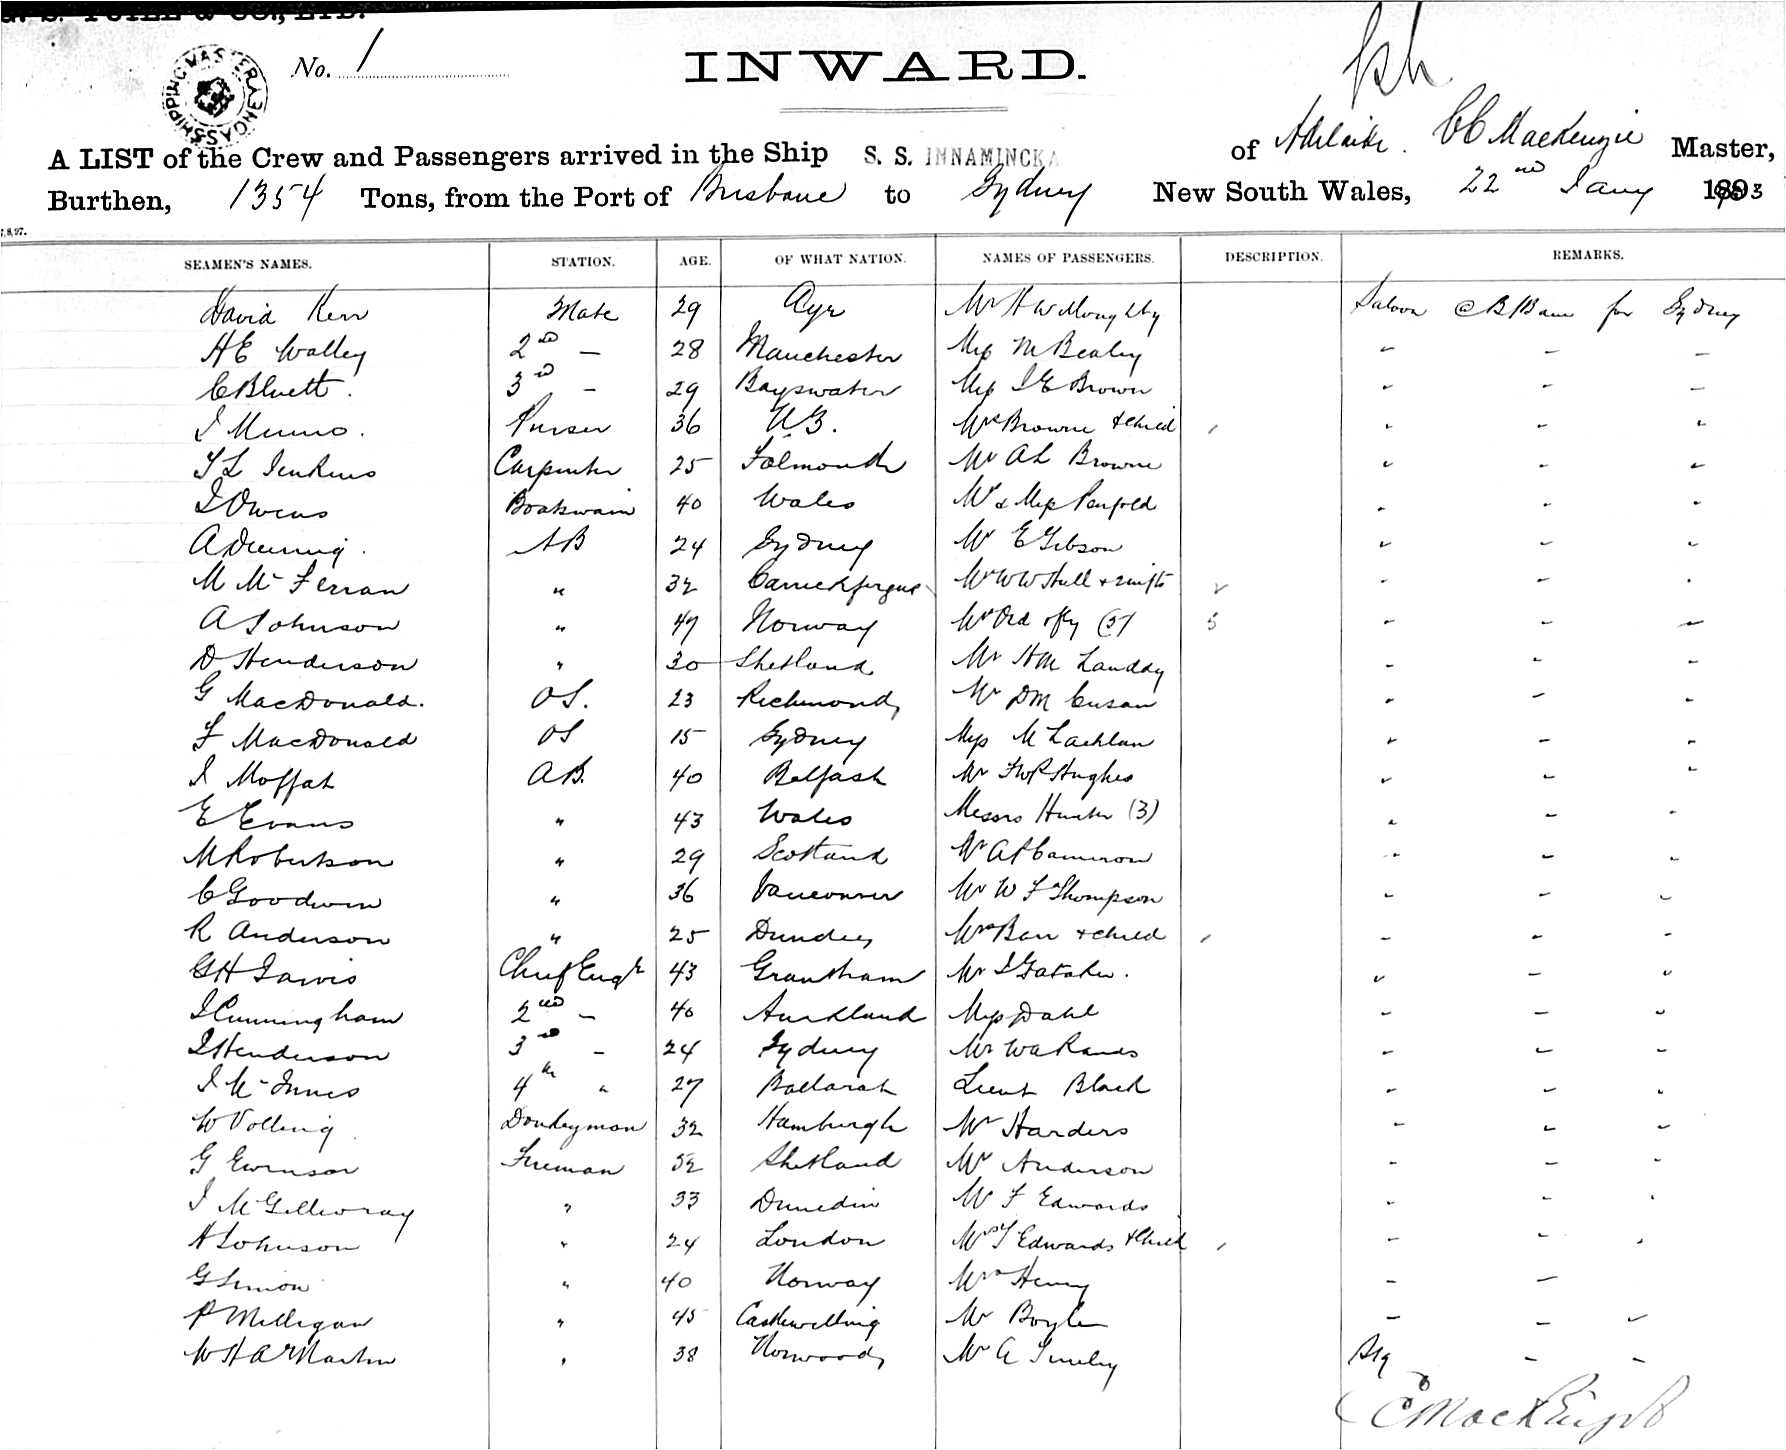 No. 1
INWARD.
SHIPPING MASTER
A LIST of the Crew and Passengers arrived in the Ship S. S. INNAMINCKA of Adelaide. CC MacKenzie Master,
Burthen, 1354 Tons, from the Port of Brisbane to Sydney New South Wales, 22nd Jany 1903
7.8.97.
SEAMEN'S NAMES. STATION. AGE. OF WHAT NATION. NAMES OF PASSENGERS. DESCRIPTION. REMARKS.
David Kerr Mate 29 Ayr Mr H Willoughby Saloon @ B/Bane for Sydney
HE Walley 2nd — 28 Manchester Miss M Bealey - - -
C Bluett. 3rd — 29 Bayswater Miss I E Brown - - -
J Munro. Purser 36 N.Z. Mrs Browne + child - - -
T L Jenkins Carpenter 25 Falmouth Mr A L Browne - - -
J Owens Boatswain 40 Wales Mr & Miss Penfold - - -
A Deening. AB 24 Sydney Mr E Gibson - - -
M Mc Ferran " 32 Carrickfergus Mr W W Hull + 2 infts 2 - - -
A Johnson " 47 Norway Mr Ord ofty (5) 5 - - -
D Henderson " 30 Shetland Mr HM Landdy - - -
G MacDonald. OS. 23 Richmond Mr DM Cusan - - -
F MacDonald OS 15 Sydney Miss McLachlan - - -
J Moffat A.B. 40 Belfast Mr Hughes - - -
E Evans " 43 Wales Messrs Hunter (3) - - -
M Robertson " 29 Scotland Mr A P Cameron - - -
C Goodwin " 36 Vancouver Mr W F Thompson - - -
R Anderson " 25 Dundee Mrs Barr + child - - -
GH Jarvis Chief Engr 43 Grantham Mr J Gataker. - - -
J Cunningham 2nd — 40 Auckland Miss Dahl - - -
J Henderson 3rd — 24 Sydney Mr W A Rands - - -
J McInnes 4th " 27 Ballarat Lieut Black - - -
W Volling Donkeyman 32 Hamburgh Mr Harders - - -
G Ewenson Fireman 52 Shetland Mr Anderson - - -
J McGillivray " 33 Dunedin Mr F Edwards - - -
H Johnson " 24 London Mrs F Edwards + Child - - -
G Simon " 40 Norway Mrs Henry - -
P Milligan " 45 Mr Boyle - - -
W H A Martin " 38 Norwood Mr A - -